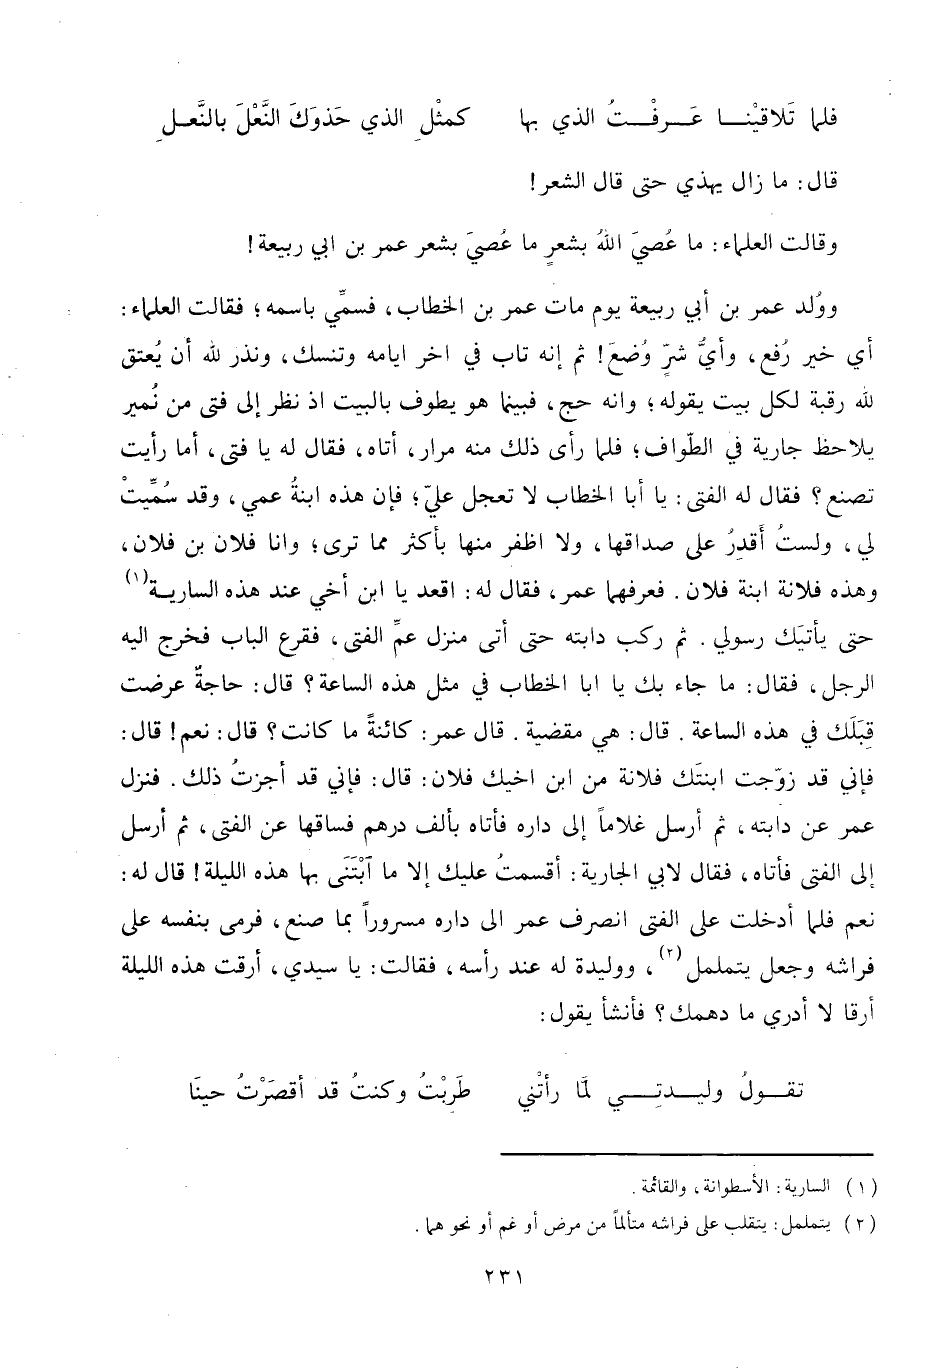 فلما تَلاقيْنـــا عَـــرفْـــتُ الذي بها كمثْلِ الذي حَذوَكَ النَّعْلَ بالنَّعـلِ
قال: ما زال يهذي حتى قال الشعر!
وقالت العلماء: ما عُصيَ اللهُ بشعرٍ ما عُصيَ بشعر عمر بن ابي ربيعة!
ووُلد عمر بن أبي ربيعة يوم مات عمر بن الخطاب، فسمِّي باسمه؛ فقالت العلماء:
أي خير رُفع، وأيُّ شرٍّ وُضعَ! ثم إنه تاب في اخر ايامه وتنسك، ونذر لله أن يُعتق
لله رقبة لكل بيت يقوله؛ وانه حج، فبينما هو يطوف بالبيت اذ نظر إلى فتى من نُمير
يلاحظ جارية في الطّواف؛ فلما رأى ذلك منه مرار، أتاه، فقال له يا فتى، أما رأيت
تصنع؟ فقال له الفتى: يا أبا الخطاب لا تعجل عليّ؛ فإن هذه ابنةُ عمي، وقد سُمِّيتْ
لي، ولستُ أَقدِرُ على صداقها، ولا اظفر منها بأكثر مما ترى؛ وانا فلان بن فلان،
وهذه فلانة ابنة فلان. فعرفهما عمر، فقال له: اقعد يا ابن أخي عند هذه الساريـة(١)
حتى يأتيَك رسولي. ثم ركب دابته حتى أتى منزل عمِّ الفتى، فقرع الباب فخرج اليه
الرجل، فقال: ما جاء بك يا ابا الخطاب في مثل هذه الساعة؟ قال: حاجةٌ عرضت
قِبَلَك في هذه الساعة. قال: هي مقضية. قال عمر: كائنةً ما كانت؟ قال: نعم! قال:
فإني قد زوّجت ابنتَك فلانة من ابن اخيك فلان: قال: فإني قد أجزتُ ذلك. فنزل
عمر عن دابته، ثم أرسل غلاماً إلى داره فأتاه بألف درهم فساقها عن الفتى، ثم أرسل
إلى الفتى فأتاه، فقال لابي الجارية: أقسمتُ عليك إلا ما آبْتَنَى بها هذه الليلة! قال له:
نعم فلما أدخلت على الفتى انصرف عمر الى داره مسروراً بما صنع، فرمى بنفسه على
فراشه وجعل يتململ(٢)، ووليدة له عند رأسه، فقالت: يا سيدي، أرقت هذه الليلة
أرقا لا أدري ما دهمك؟ فأنشأ يقول:
تقـــولُ وليـــدتِـــي لمَّا رأتْني طَرِبْتُ وكنتُ قد أقصَرْتُ حينَا
(١) السارية: الأسطوانة، والقائمة.
(٢) يتململ: يتقلب على فراشه متألماً من مرض أو غم أو نحو هما.
٢٣١